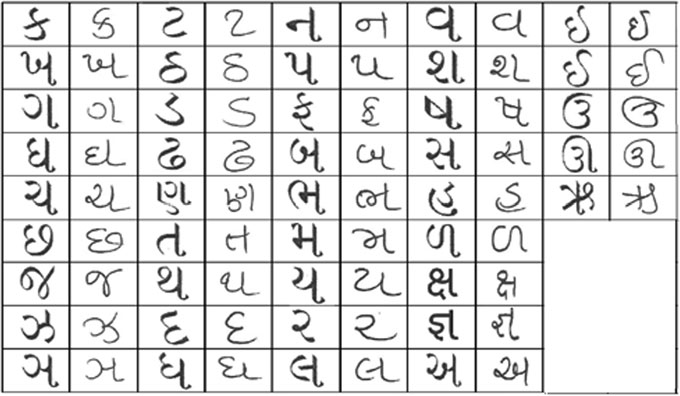 ક ક ટ ટ ન ન વ વ ઇ ઇ
ખ ખ ઠ ઠ પ પ શ શ ઈ ઈ
ગ ગ ડ ડ ફ ફ ષ ષ ઉ ઉ
ઘ ઘ ઢ ઢ બ બ સ સ ઊ ઊ
ચ ચ ણ ણ ભ ભ હ હ ઋ ઋ
છ છ ત ત મ મ ળ ળ
જ જ થ થ ય ય ક્ષ ક્ષ
ઝ ઝ દ દ ર ર જ્ઞ જ્ઞ
ઞ ઞ ધ ધ લ લ અ અ